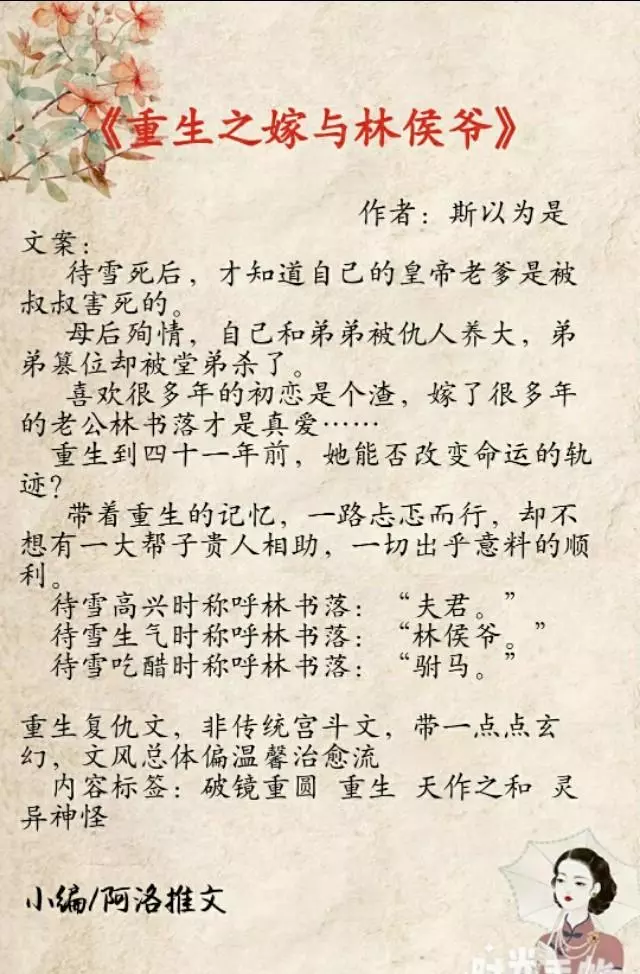 《重生之嫁与林侯爷》
作者：斯以为是
文案：
待雪死后，才知道自己的皇帝老爹是被
叔叔害死的。
母后殉情，自己和弟弟被仇人养大，弟
弟篡位却被堂弟杀了。
喜欢很多年的初恋是个渣，嫁了很多年
的老公林书落才是真爱……
重生到四十一年前，她能否改变命运的轨
迹？
带着重生的记忆，一路忐忑而行，却不
想有一大帮子贵人相助，一切出乎意料的顺
利。
待雪高兴时称呼林书落：“夫君。”
待雪生气时称呼林书落：“林侯爷。”
待雪吃醋时称呼林书落：“驸马。”
重生复仇文，非传统宫斗文，带一点点玄
幻，文风总体偏温馨治愈流
内容标签：破镜重圆 重生 天作之和 灵
异神怪
小编/阿洛推文